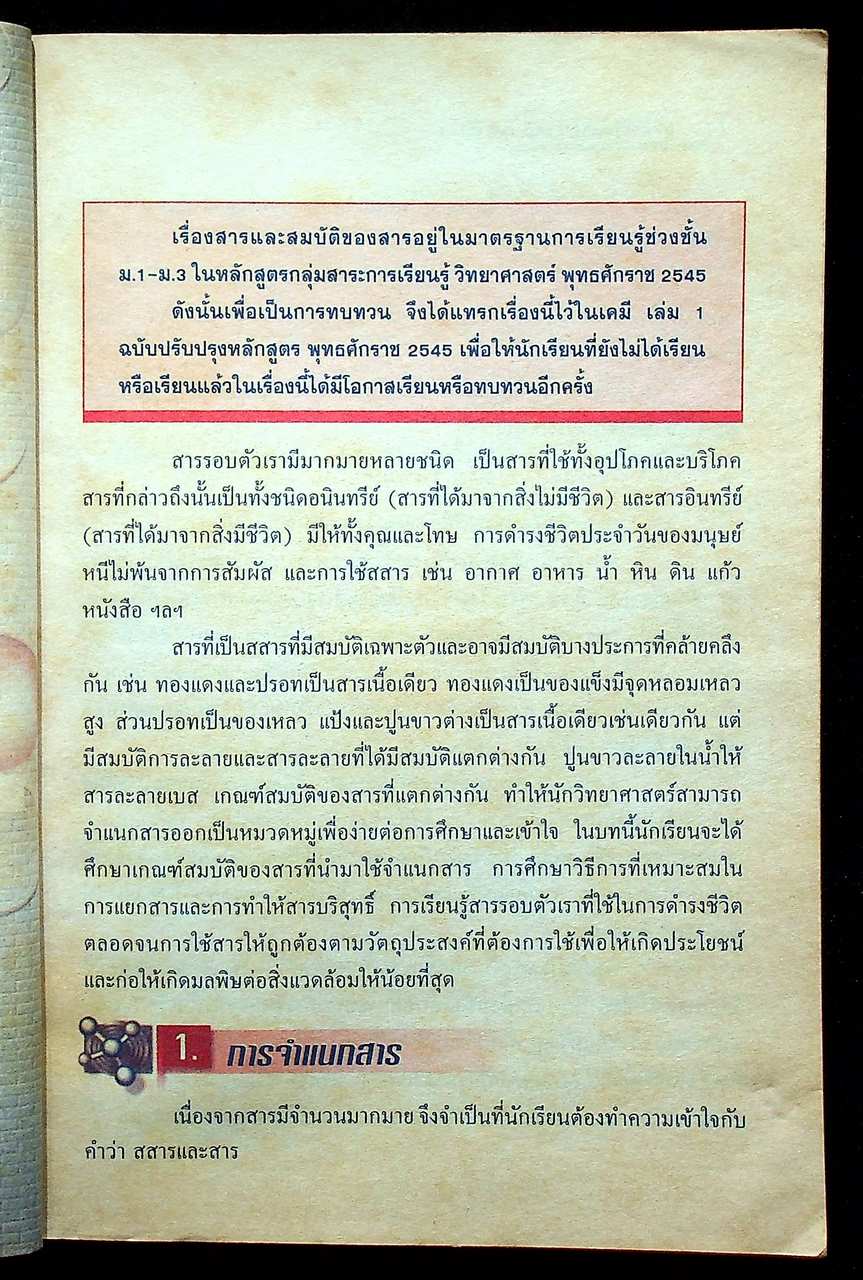 เรื่องสารและสมบัติของสารอยู่ในมาตรฐานการเรียนรู้ช่วงชั้น
ม.1-ม.3 ในหลักสูตรกลุ่มสาระการเรียนรู้ วิทยาศาสตร์ พุทธศักราช 2545
ดังนั้นเพื่อเป็นการทบทวน จึงได้แทรกเรื่องนี้ไว้ในเคมี เล่ม 1
ฉบับปรับปรุงหลักสูตร พุทธศักราช 2545 เพื่อให้นักเรียนที่ยังไม่ได้เรียน
หรือเรียนแล้วในเรื่องนี้ได้มีโอกาสเรียนหรือทบทวนอีกครั้ง
สารรอบตัวเรามีมากมายหลายชนิด เป็นสารที่ใช้ทั้งอุปโภคและบริโภค
สารที่กล่าวถึงนั้นเป็นทั้งชนิดอนินทรีย์ (สารที่ได้มาจากสิ่งไม่มีชีวิต) และสารอินทรีย์
(สารที่ได้มาจากสิ่งมีชีวิต) มีให้ทั้งคุณและโทษ การดำรงชีวิตประจำวันของมนุษย์
หนีไม่พ้นจากการสัมผัส และการใช้สสาร เช่น อากาศ อาหาร น้ำ หิน ดิน แก้ว
หนังสือ ฯลฯ
สารที่เป็นสสารที่มีสมบัติเฉพาะตัวและอาจมีสมบัติบางประการที่คล้ายคลึง
กัน เช่น ทองแดงและปรอทเป็นสารเนื้อเดียว ทองแดงเป็นของแข็งมีจุดหลอมเหลว
สูง ส่วนปรอทเป็นของเหลว แป้งและปูนขาวต่างเป็นสารเนื้อเดียวเช่นเดียวกัน แต่
มีสมบัติการละลายและสารละลายที่ได้มีสมบัติแตกต่างกัน ปูนขาวละลายในน้ำให้
สารละลายเบส เกณฑ์สมบัติของสารที่แตกต่างกัน ทำให้นักวิทยาศาสตร์สามารถ
จำแนกสารออกเป็นหมวดหมู่เพื่อง่ายต่อการศึกษาและเข้าใจ ในบทนี้นักเรียนจะได้
ศึกษาเกณฑ์สมบัติของสารที่นำมาใช้จำแนกสาร การศึกษาวิธีการที่เหมาะสมใน
การแยกสารและการทำให้สารบริสุทธิ์ การเรียนรู้สารรอบตัวเราที่ใช้ในการดำรงชีวิต
ตลอดจนการใช้สารให้ถูกต้องตามวัตถุประสงค์ที่ต้องการใช้เพื่อให้เกิดประโยชน์
และก่อให้เกิดมลพิษต่อสิ่งแวดล้อมให้น้อยที่สุด
1. การจำแนกสาร
เนื่องจากสารมีจำนวนมากมาย จึงจำเป็นที่นักเรียนต้องทำความเข้าใจกับ
คำว่า สสารและสาร